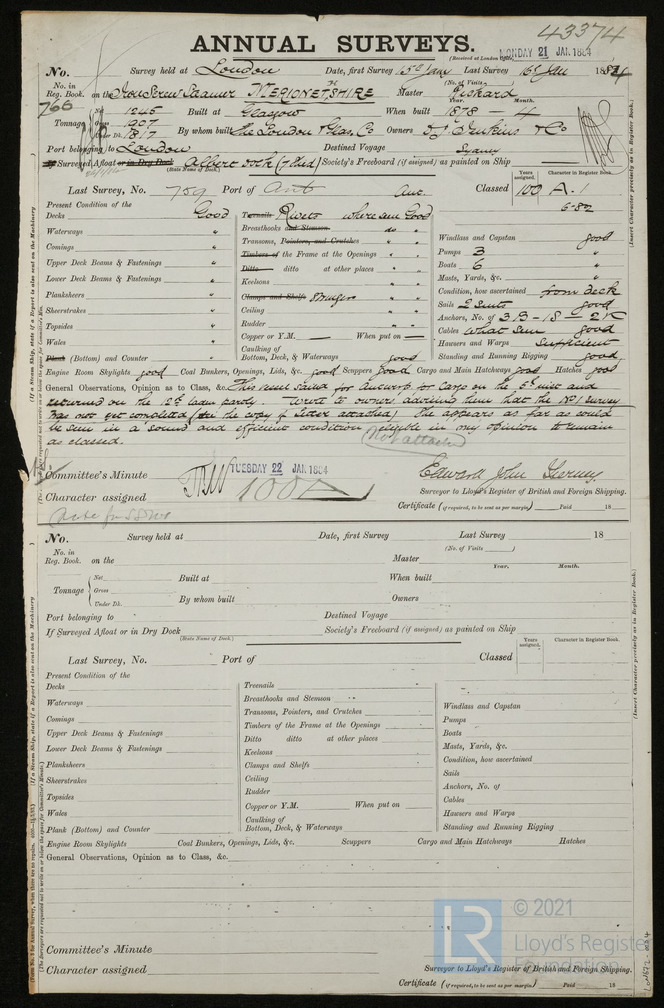 43374
ANNUAL SURVEYS.
(Received at London Office,
MONDAY 21 JAN 1884
No. Survey held at London Date, first Survey 15th Jany Last Survey 16th Jan 1884
(No. of Visits
No. in Reg. Book. 766 on the Iron Screw Steamer MERIONETHSHIRE Master
Year. Month.
Tonnage Net 1245 Built at Glasgow When built 1878 - 4
Gross 1907
Under Dk. 1817 By whom built The London & Glas. Co Owners D J Jenkins & Co
Port belonging to London Destined Voyage Sydney
If Surveyed Afloat or in Dry Dock Albert Dock Society's Freeboard (if assigned) as painted on Ship
(State Name of Dock.)
Years assigned. Character in Register Book.
Last Survey, No. 759 Port of Ant Classed 100 A.1
6.82
Present Condition of the
Decks Good
Waterways "
Comings "
Upper Deck Beams & Fastenings "
Lower Deck Beams & Fastenings "
Planksheers "
Sheerstrakes "
Topsides "
Wales "
Plank (Bottom) and Counter "
Treenails Rivets where seen Good
Breasthooks and Stemson do "
Transoms, Pointers, and Crutches " "
Timbers of the Frame at the Openings " "
Ditto ditto at other places " "
Keelsons " "
Clamps and Shelfs Stringers " "
Ceiling " "
Rudder " "
Copper or Y.M. — When put on —
Caulking of
Bottom, Deck, & Waterways good
Windlass and Capstan good
Pumps 3 "
Boats 6 "
Masts, Yards, &c. "
Condition, how ascertained from deck
Sails 2 Suits good
Anchors, No. of 3.B - 1S - 2K
Cables what seen good
Hawsers and Warps Sufficient
Standing and Running Rigging good
Engine Room Skylights good Coal Bunkers, Openings, Lids, &c. good Scuppers good Cargo and Main Hatchways good Hatches good
General Observations, Opinion as to Class, &c. This vessel sailed for Antwerp for Cargo on the 5th inst and
returned on the 12th laden partly. Wrote to owners advising them that the No 1 Survey
was not yet completed (see the copy of letter attached) She appears as far as could
be seen in a sound and efficient condition eligible in my opinion to remain
as classed.
Not attached
Committee's Minute TUESDAY 22 JAN 1884
Edward John Gurney
Character assigned 100A1
Surveyor to Lloyd's Register of British and Foreign Shipping.
Certificate (if required, to be sent as per margin) Paid 18
No. Survey held at Date, first Survey Last Survey 18
(No. of Visits )
No. in Reg. Book. on the Master
Year. Month.
Tonnage Net Built at When built
Gross
Under Dk. By whom built Owners
Port belonging to Destined Voyage
If Surveyed Afloat or in Dry Dock Society's Freeboard (if assigned) as painted on Ship
(State Name of Dock.)
Years assigned. Character in Register Book.
Last Survey, No. Port of Classed
Present Condition of the
Decks
Waterways
Comings
Upper Deck Beams & Fastenings
Lower Deck Beams & Fastenings
Planksheers
Sheerstrakes
Topsides
Wales
Plank (Bottom) and Counter
Treenails
Breasthooks and Stemson
Transoms, Pointers, and Crutches
Timbers of the Frame at the Openings
Ditto ditto at other places
Keelsons
Clamps and Shelfs
Ceiling
Rudder
Copper or Y.M. When put on
Caulking of
Bottom, Deck, & Waterways
Windlass and Capstan
Pumps
Boats
Masts, Yards, &c.
Condition, how ascertained
Sails
Anchors, No. of
Cables
Hawsers and Warps
Standing and Running Rigging
Engine Room Skylights Coal Bunkers, Openings, Lids, &c. Scuppers Cargo and Main Hatchways Hatches
General Observations, Opinion as to Class, &c.
Committee's Minute
Character assigned
Surveyor to Lloyd's Register of British and Foreign Shipping.
Certificate (if required, to be sent as per margin) Paid 18
(Insert Character precisely as in Register Book.)
(Insert Character precisely as in Register Book.)
LR
© 2021
Lloyd's Register
Foundation